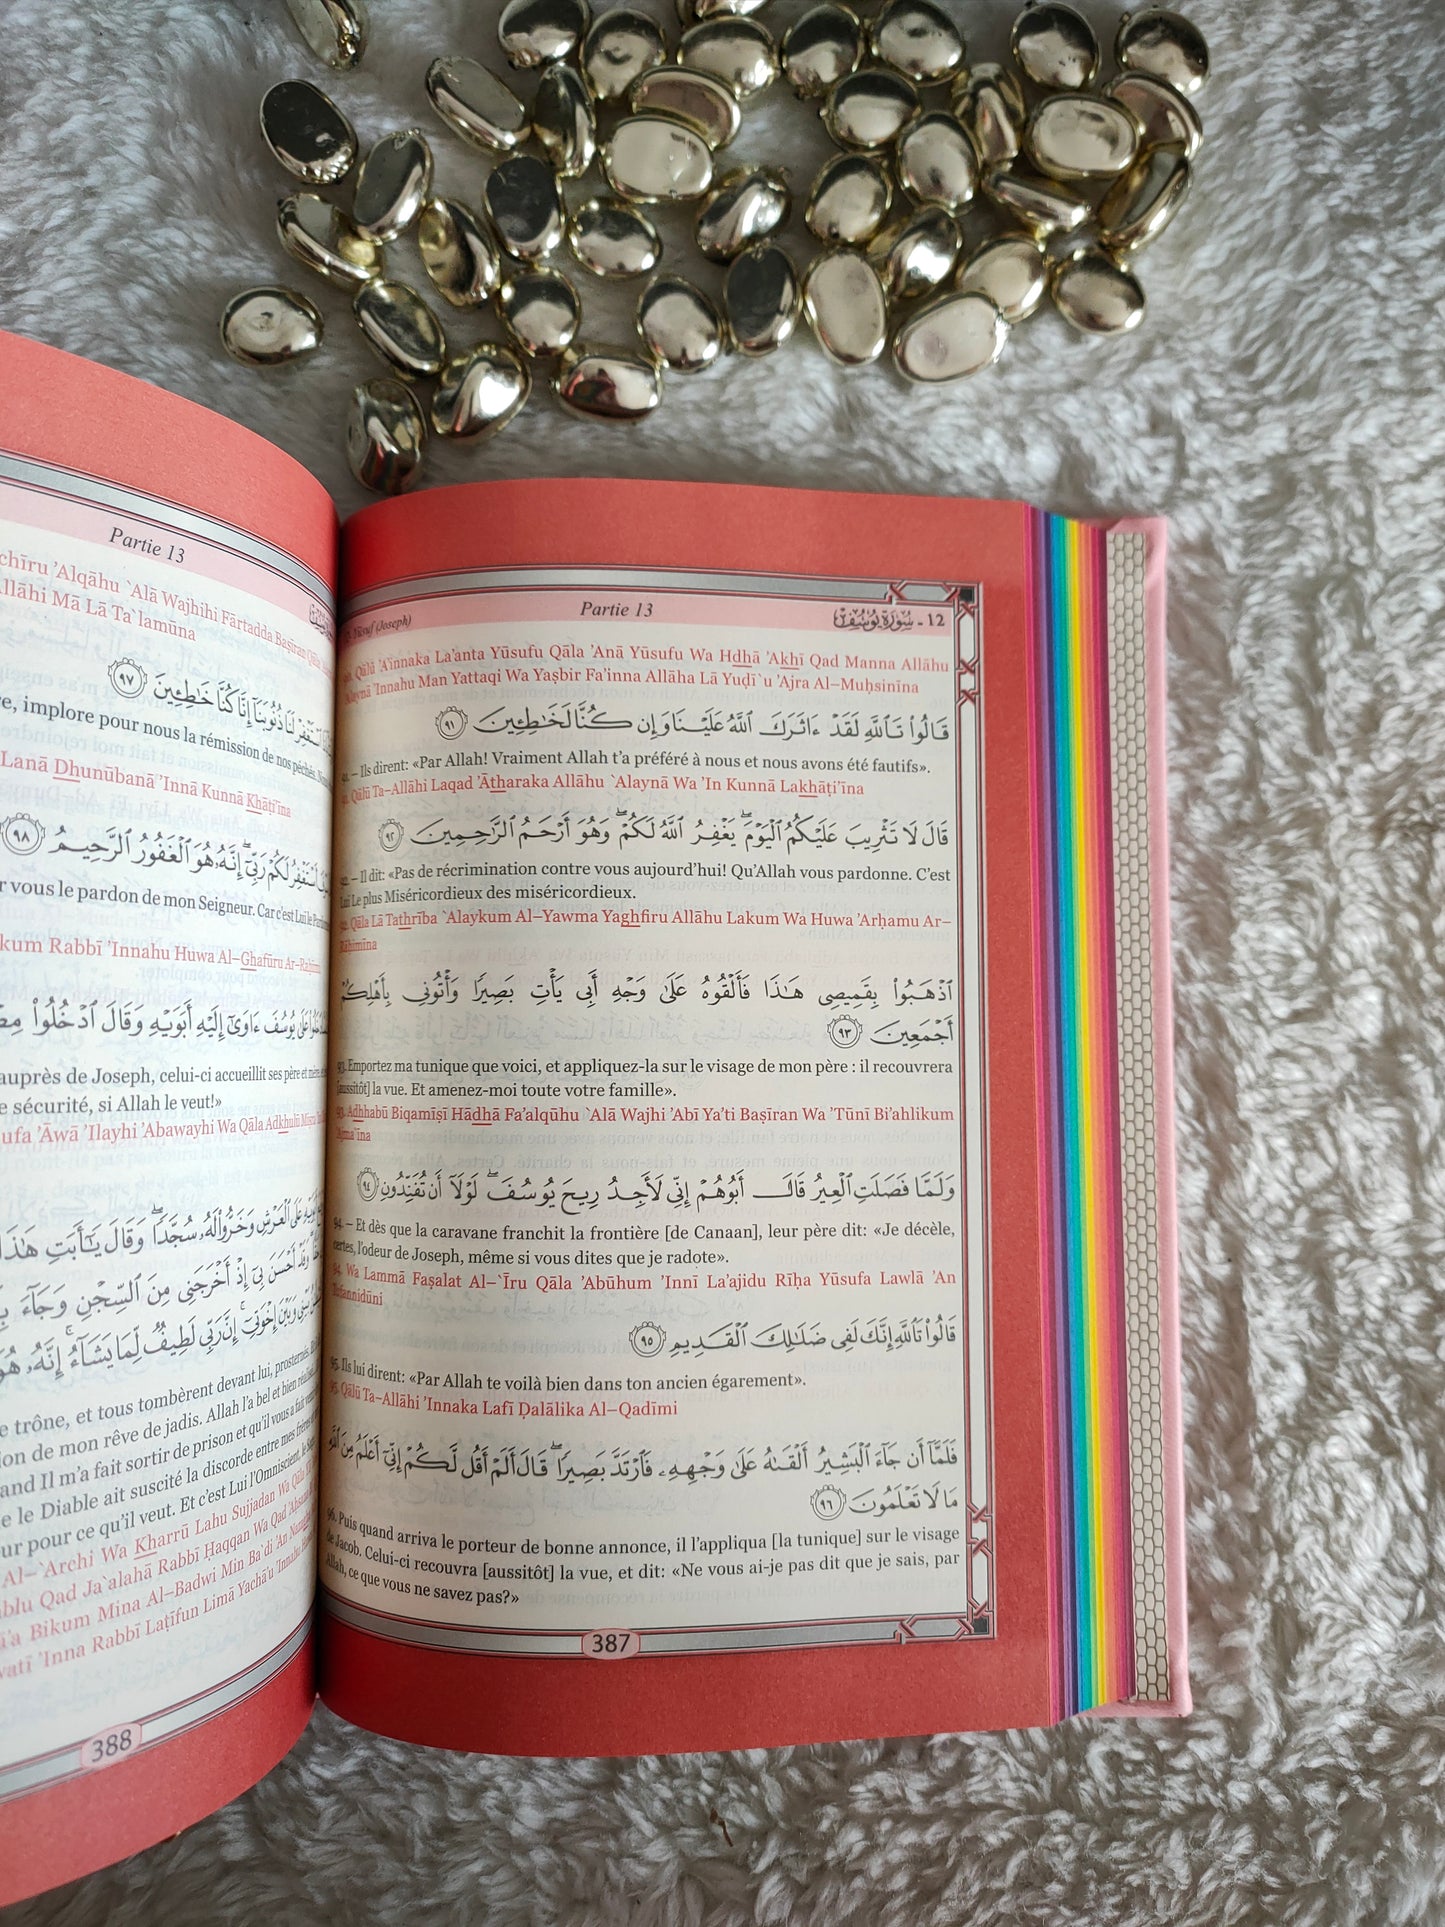 12. Yūsuf (Joseph)
Partie 13
12 - سُورَةُ يُوسُفَ
90. Qālū 'A'innaka La'anta Yūsufu Qāla 'Anā Yūsufu Wa Hādhā 'Akhī Qad Manna Allāhu
`Alaynā 'Innahu Man Yattaqi Wa Yaṣbir Fa'inna Allāha Lā Yuḍī`u 'Ajra Al–Muḥsinīna
قَالُواْ تَاللَّهِ لَقَدْ ءَاثَرَكَ اللَّهُ عَلَيْنَا وَإِن كُنَّا لَخَٰطِـِٔينَ ٩١
91. – Ils dirent: «Par Allah! Vraiment Allah t’a préféré à nous et nous avons été fautifs».
91. Qālū Ta–Allāhi Laqad 'Ātharaka Allāhu `Alaynā Wa 'In Kunnā Lakhāṭi'īna
قَالَ لَا تَثْرِيبَ عَلَيْكُمُ الْيَوْمَ ۖ يَغْفِرُ اللَّهُ لَكُمْ ۖ وَهُوَ أَرْحَمُ الرَّٰحِمِينَ ٩٢
92. – Il dit: «Pas de récrimination contre vous aujourd’hui! Qu’Allah vous pardonne. C’est
Lui Le plus Miséricordieux des miséricordieux.
92. Qāla Lā Tathrība `Alaykum Al–Yawma Yaghfiru Allāhu Lakum Wa Huwa 'Arḥamu Ar–
Rāḥimīna
اذْهَبُواْ بِقَمِيصِي هَٰذَا فَأَلْقُوهُ عَلَىٰ وَجْهِ أَبِي يَأْتِ بَصِيرًا وَأْتُونِي بِأَهْلِكُمْ
أَجْمَعِينَ ٩٣
93. Emportez ma tunique que voici, et appliquez-la sur le visage de mon père : il recouvrera
[aussitôt] la vue. Et amenez-moi toute votre famille».
93. Adhhabū Biqamīṣī Hādhā Fa'alqūhu `Alā Wajhi 'Abī Ya'ti Baṣīran Wa 'Tūnī Bi'ahlikum
'Ajma`īna
وَلَمَّا فَصَلَتِ الْعِيرُ قَالَ أَبُوهُمْ إِنِّي لَأَجِدُ رِيحَ يُوسُفَ ۖ لَوْلَا أَن تُفَنِّدُونِ ٩٤
94. – Et dès que la caravane franchit la frontière [de Canaan], leur père dit: «Je décèle,
certes, l’odeur de Joseph, même si vous dites que je radote».
94. Wa Lammā Faṣalat Al–`Īru Qāla 'Abūhum 'Innī La'ajidu Rīḥa Yūsufa Lawlā 'An
Tufannidūni
قَالُواْ تَاللَّهِ إِنَّكَ لَفِي ضَلَٰلِكَ الْقَدِيمِ ٩٥
95. Ils lui dirent: «Par Allah te voilà bien dans ton ancien égarement».
95. Qālū Ta–Allāhi 'Innaka Lafī Ḍalālika Al–Qadīmi
فَلَمَّآ أَن جَآءَ الْبَشِيرُ أَلْقَىٰهُ عَلَىٰ وَجْهِهِۦ فَارْتَدَّ بَصِيرًا ۖ قَالَ أَلَمْ أَقُل لَّكُمْ إِنِّيٓ أَعْلَمُ مِنَ اللَّهِ
مَا لَا تَعْلَمُونَ ٩٦
96. Puis quand arriva le porteur de bonne annonce, il l’appliqua [la tunique] sur le visage
de Jacob. Celui-ci recouvra [aussitôt] la vue, et dit: «Ne vous ai-je pas dit que je sais, par
Allah, ce que vous ne savez pas?»
387
Partie 13
'Alqāhu `Alā Wajhihi Fārtadda Baṣīran Qāla
Allāhi Mā Lā Ta`lamūna
اسْتَغْفِرْ لَنَا ذُنُوبَنَآ إِنَّا كُنَّا خَٰطِـِٔينَ ٩٧
implore pour nous la rémission de nos péchés.
Lanā Dhunūbanā 'Innā Kunnā Khāṭi'īna
أَسْتَغْفِرُ لَكُمْ رَبِّيٓ ۖ إِنَّهُۥ هُوَ الْغَفُورُ الرَّحِيمُ ٩٨
vous le pardon de mon Seigneur. Car c’est Lui le
Rabbī 'Innahu Huwa Al–Ghafūru Ar–Raḥīmu
عَلَىٰ يُوسُفَ ءَاوَىٰٓ إِلَيْهِ أَبَوَيْهِ وَقَالَ ادْخُلُواْ
auprès de Joseph, celui-ci accueillit ses père et mère,
sécurité, si Allah le veut!»
'Āwā 'Ilayhi 'Abawayhi Wa Qāla Adkhulū
عَلَى الْعَرْشِ وَخَرُّواْ لَهُۥ سُجَّدًا ۖ وَقَالَ يَٰٓأَبَتِ هَٰذَا
وَقَدْ أَحْسَنَ بِيٓ إِذْ أَخْرَجَنِي مِنَ السِّجْنِ وَجَآءَ
بَيْنِي وَبَيْنَ إِخْوَتِيٓ ۚ إِنَّ رَبِّي لَطِيفٌ لِّمَا يَشَآءُ ۚ إِنَّهُۥ هُوَ
trône, et tous tombèrent devant lui, prosternés.
de mon rêve de jadis. Allah l’a bel et bien
Il m’a fait sortir de prison et qu’il vous a fait
le Diable ait suscité la discorde entre mes frères et
pour ce qu’il veut. Et c’est Lui l’Omniscient, le
Al–`Archi Wa Kharrū Lahu Sujjadan Wa Qāla
Qad Ja`alahā Rabbī Ḥaqqan Wa Qad 'Aḥsana
Bikum Mina Al–Badwi Min Ba`di 'An
'Inna Rabbī Laṭīfun Limā Yachā'u 'Innahu
388